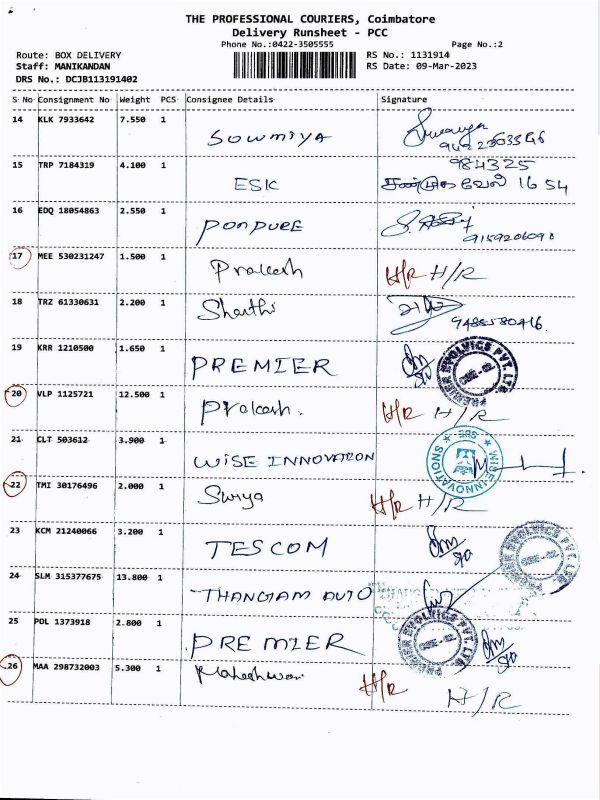 THE PROFESSIONAL COURIERS, Coimbatore
Delivery Runsheet - PCC
Phone No.:0422-3505555 Page No.:2
Route: BOX DELIVERY RS No.: 1131914
Staff: MANIKANDAN RS Date: 09-Mar-2023
DRS No.: DCJB113191402
S No Consignment No Weight PCS Consignee Details Signature
14 KLK 7933642 7.550 1 SOWMIYA
15 TRP 7184319 4.100 1 ESIC 984325
1654
16 EDQ 18054863 2.550 1 PONPURE
9159206090
17 MEE 530231247 1.500 1 Prakash H/R H/R
18 TRZ 61330631 2.200 1
19 KRR 1210500 1.650 1 PREMIER PREMIER EVOLVICS PVT. LTD
20 VLP 1125721 12.500 1 Prakash. H/R H/R
21 CLT 503612 3.900 1 WISE INNOVATION WISE INNOVATIONS
22 TMI 30176496 2.000 1 Surya H/R H/R
23 KCM 21240066 3.200 1 TESCOM PREMIER EVOLVICS PVT. LTD
24 SLM 315377675 13.800 1 THANGAM AUTO
25 POL 1373918 2.800 1 PREMIER PREMIER EVOLVICS PVT. LTD
26 MAA 298732003 5.300 1 Maheshwari H/R H/R